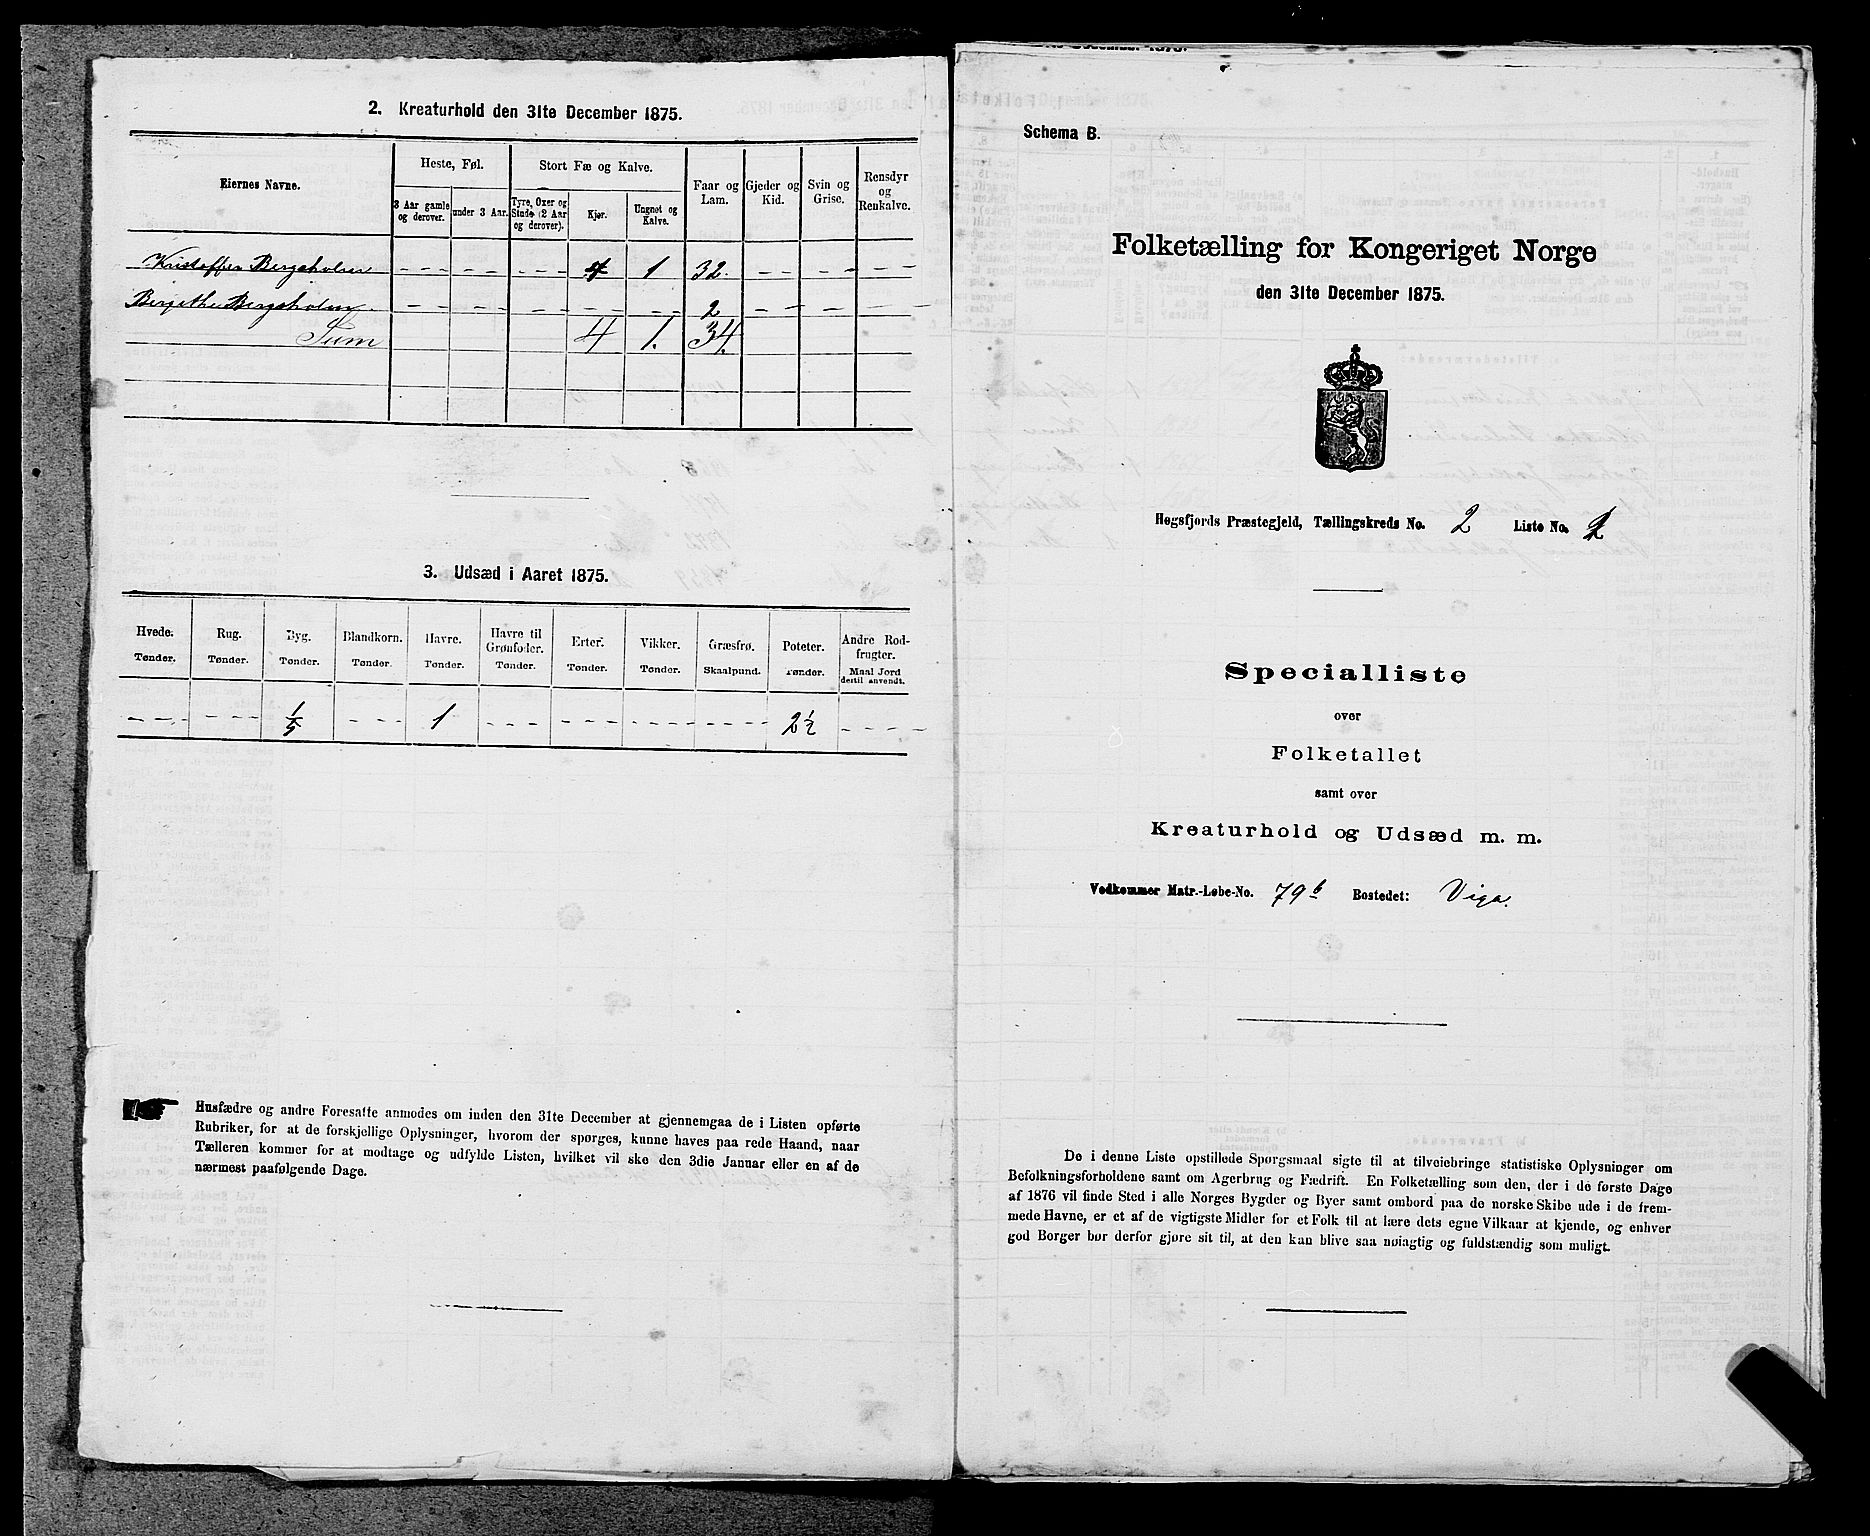 2. Kreaturhold den 31te December 1875.
Eiernes Navne.
Heste, Føl.
3 Aar gamle og derover.
under 3 Aar.
Stort Fæ og Kalve.
Tyre, Oxer og Stude (2 Aar og derover).
Kjør.
Ungnet og Kalve.
Faar og Lam.
Gjeder og Kid.
Svin og Grise.
Rensdyr og Renkalve.
Kristoffer Bergsholm - - - - - - 4 1 32. - - - - - -
Bergithe Bergsholm - - - - - - - - 2 - - - - -
Sum 4 1. 34.
3. Udsæd i Aaret 1875.
Hvede. Tønder.
Rug. Tønder.
Byg. Tønder.
Blandkorn. Tønder.
Havre. Tønder.
Havre til Grønfoder. Tønder.
Erter. Tønder.
Vikker. Tønder.
Græsfrø. Skaalpund.
Poteter. Tønder.
Andre Rodfrugter. Maal Jord dertil anvendt.
- - - - - - 1/5 - - - 1 - - - - - - - - - - - - 2 1/2 - - - -
Husfædre og andre Foresatte anmodes om inden den 31te December at gjennemgaa de i Listen opførte
Rubriker, for at de forskjellige Oplysninger, hvorom der spørges, kunne haves paa rede Haand, naar
Tælleren kommer for at modtage og udfylde Listen, hvilket vil ske den 3die Januar eller en af de
nærmest paafølgende Dage.
Schema B.
Folketælling for Kongeriget Norge
den 31te December 1875.
Høgsfjords Præstegjeld, Tællingskreds No. 2 Liste No. 2
Specialliste
over
Folketallet
samt over
Kreaturhold og Udsæd m. m.
Vedkommer Matr.-Løbe-No. 79b Bostedet: Viga.
De i denne Liste opstillede Spørgsmaal sigte til at tilveiebringe statistiske Oplysninger om
Befolkningsforholdene samt om Agerbrug og Fædrift. En Folketælling som den, der i de første Dage
af 1876 vil finde Sted i alle Norges Bygder og Byer samt ombord paa de norske Skibe ude i de frem-
mede Havne, er et af de vigtigste Midler for et Folk til at lære dets egne Vilkaar at kjende, og enhver
god Borger bør derfor gjøre sit til, at den kan blive saa nøiagtig og fuldstændig som muligt.